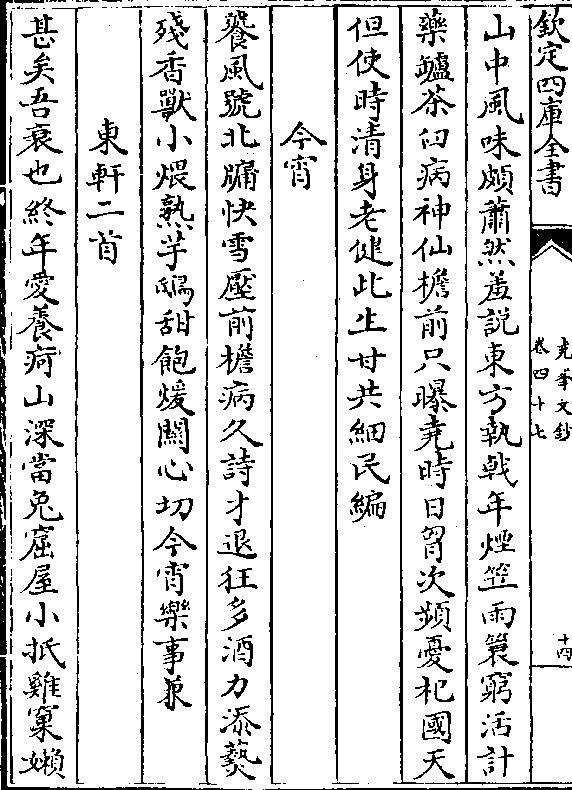 欽定四庫全書
堯峯文鈔
卷四十七
十四
山中風味頗蕭然羞説東方執戟年煙笠雨簑窮活計
藥罏茶臼病神仙檐前只曝堯時日胷次頻憂杞國天
但使時清身老健此生甘共細民編
今宵
饕風號北牖快雪壓前檐病久詩才退狂多酒力添爇
殘香獸小煨熟芋鴟甜飽煖關心切今宵樂事兼
東軒二首
甚矣吾衰也終年愛養疴山深當兔窟屋小抵雞窠嬾